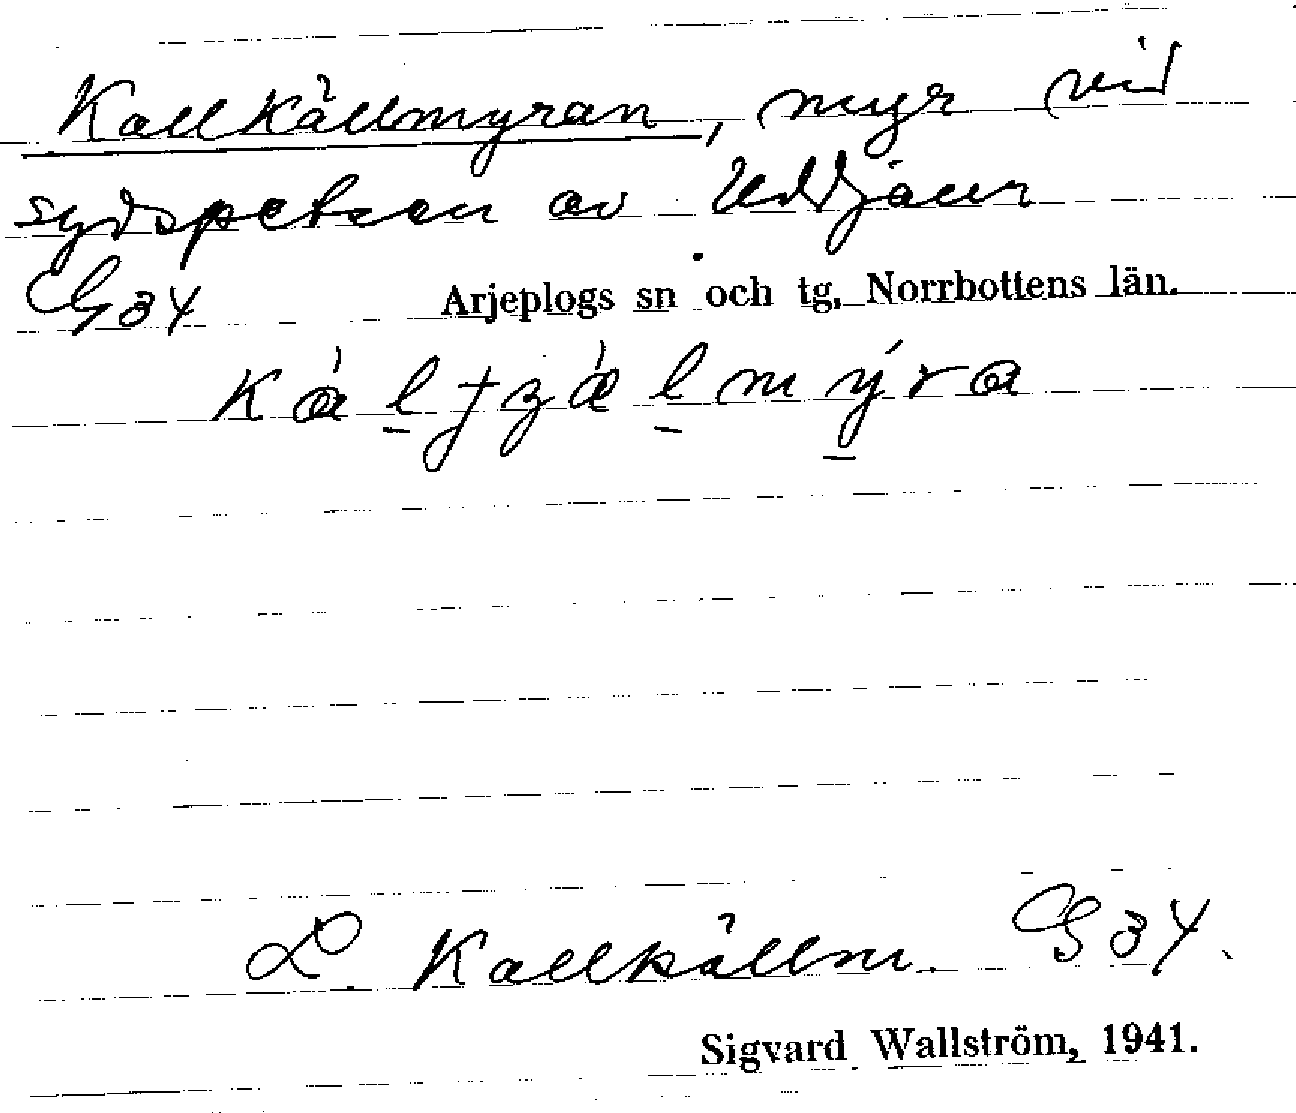 Kallkällmyran, myr vid
sydspetsen av Uddjaur
G34 Arjeplogs sn och tg, Norrbottens län.
L. Kallkällm. G34.
Sigvard Wallström, 1941.